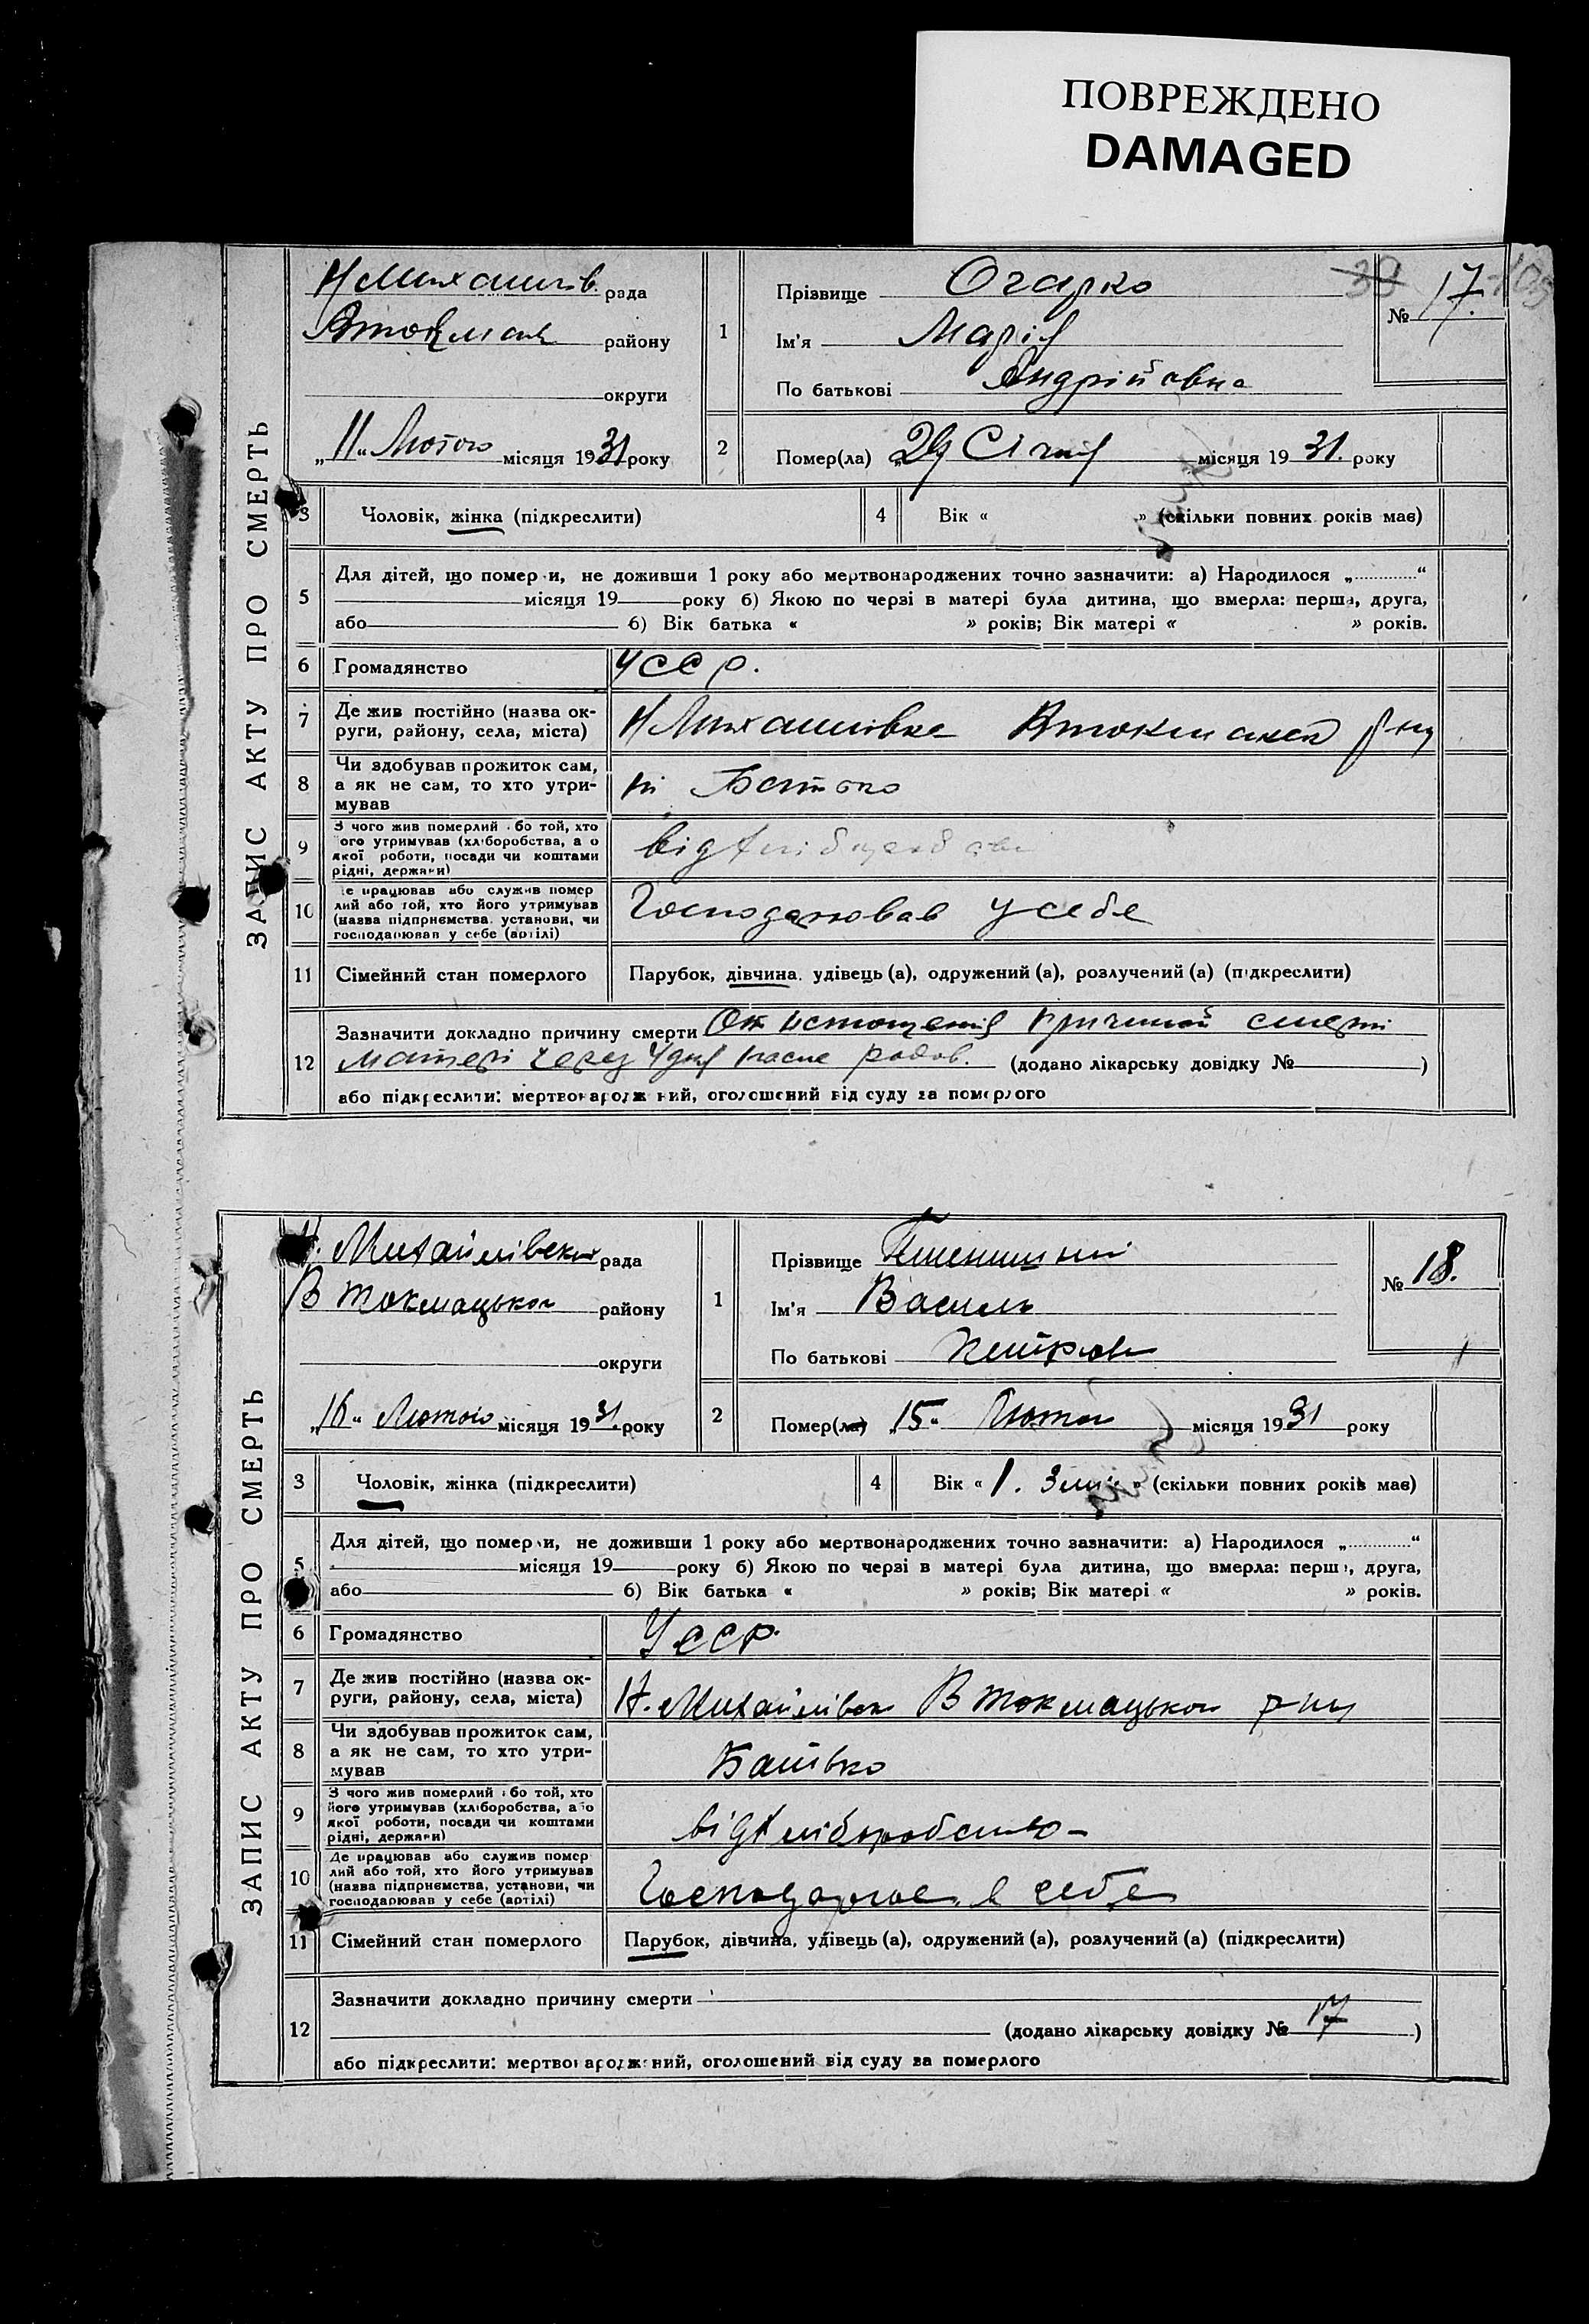 ПОВРЕЖДЕНО
DAMAGED
ЗАПИС АКТУ ПРО СМЕРТЬ
рада
району
округи
„11“ Лютого місяця 1931 року
1
Прізвище Огарко
Ім'я Марія
По батькові Андрійовна
39
№ 17.
2
Помер(ла) „29 Січня місяця 1931. року
3
Чоловік, жінка (підкреслити)
4
Вік « » (скільки повних років має)
5
Для дітей, що померли, не доживши 1 року або мертвонароджених точно зазначити: а) Народилося „............“
місяця 19 року б) Якою по черзі в матері була дитина, що вмерла: перша, друга,
або б) Вік батька « » років; Вік матері « » років.
6
Громадянство
УССР.
7
Де жив постійно (назва ок-
руги, району, села, міста)
8
Чи здобував прожиток сам,
а як не сам, то хто утри-
мував
ні Батько
9
З чого жив померлий або той, хто
його утримував (хліборобства, або
якої роботи, посади чи коштами
рідні, держави)
від хліборобства
10
Де працював або служив помер
лий або той, хто його утримував
(назва підприємства, установи, чи
господарював у себе (артілі)
Господарював у себе
11
Сімейний стан померлого
Парубок, дівчина, удівець (а), одружений (а), розлучений (а) (підкреслити)
12
Зазначити докладно причину смерти От истощенія причиной смерті
матері через 4 дня после родов. (додано лікарську довідку № )
або підкреслити: мертвонароджений, оголошений від суду за померлого
ЗАПИС АКТУ ПРО СМЕРТЬ
Н. Михайлівської рада
В Токмацького району
округи
„16“ Лютого місяця 1931. року
1
Прізвище Пшенишний
Ім'я Василь
По батькові Петров
№ 18.
2
Помер(ла) „15“ Лютого місяця 1931 року
3
Чоловік, жінка (підкреслити)
4
Вік « 1. 3 міс » (скільки повних років має)
5
Для дітей, що померли, не доживши 1 року або мертвонароджених точно зазначити: а) Народилося „............“
місяця 19 року б) Якою по черзі в матері була дитина, що вмерла: перша, друга,
або б) Вік батька « » років; Вік матері « » років.
6
Громадянство
УССР.
7
Де жив постійно (назва ок-
руги, району, села, міста)
Н. Михайлівки В Токмацького р-ну
8
Чи здобував прожиток сам,
а як не сам, то хто утри-
мував
Батько
9
З чого жив померлий або той, хто
його утримував (хліборобства, або
якої роботи, посади чи коштами
рідні, держави)
від хліборобства
10
Де працював або служив помер
лий або той, хто його утримував
(назва підприємства, установи, чи
господарював у себе (артілі)
в себе
11
Сімейний стан померлого
Парубок, дівчина, удівець (а), одружений (а), розлучений (а) (підкреслити)
12
Зазначити докладно причину смерти
(додано лікарську довідку № 17 )
або підкреслити: мертвонароджений, оголошений від суду за померлого